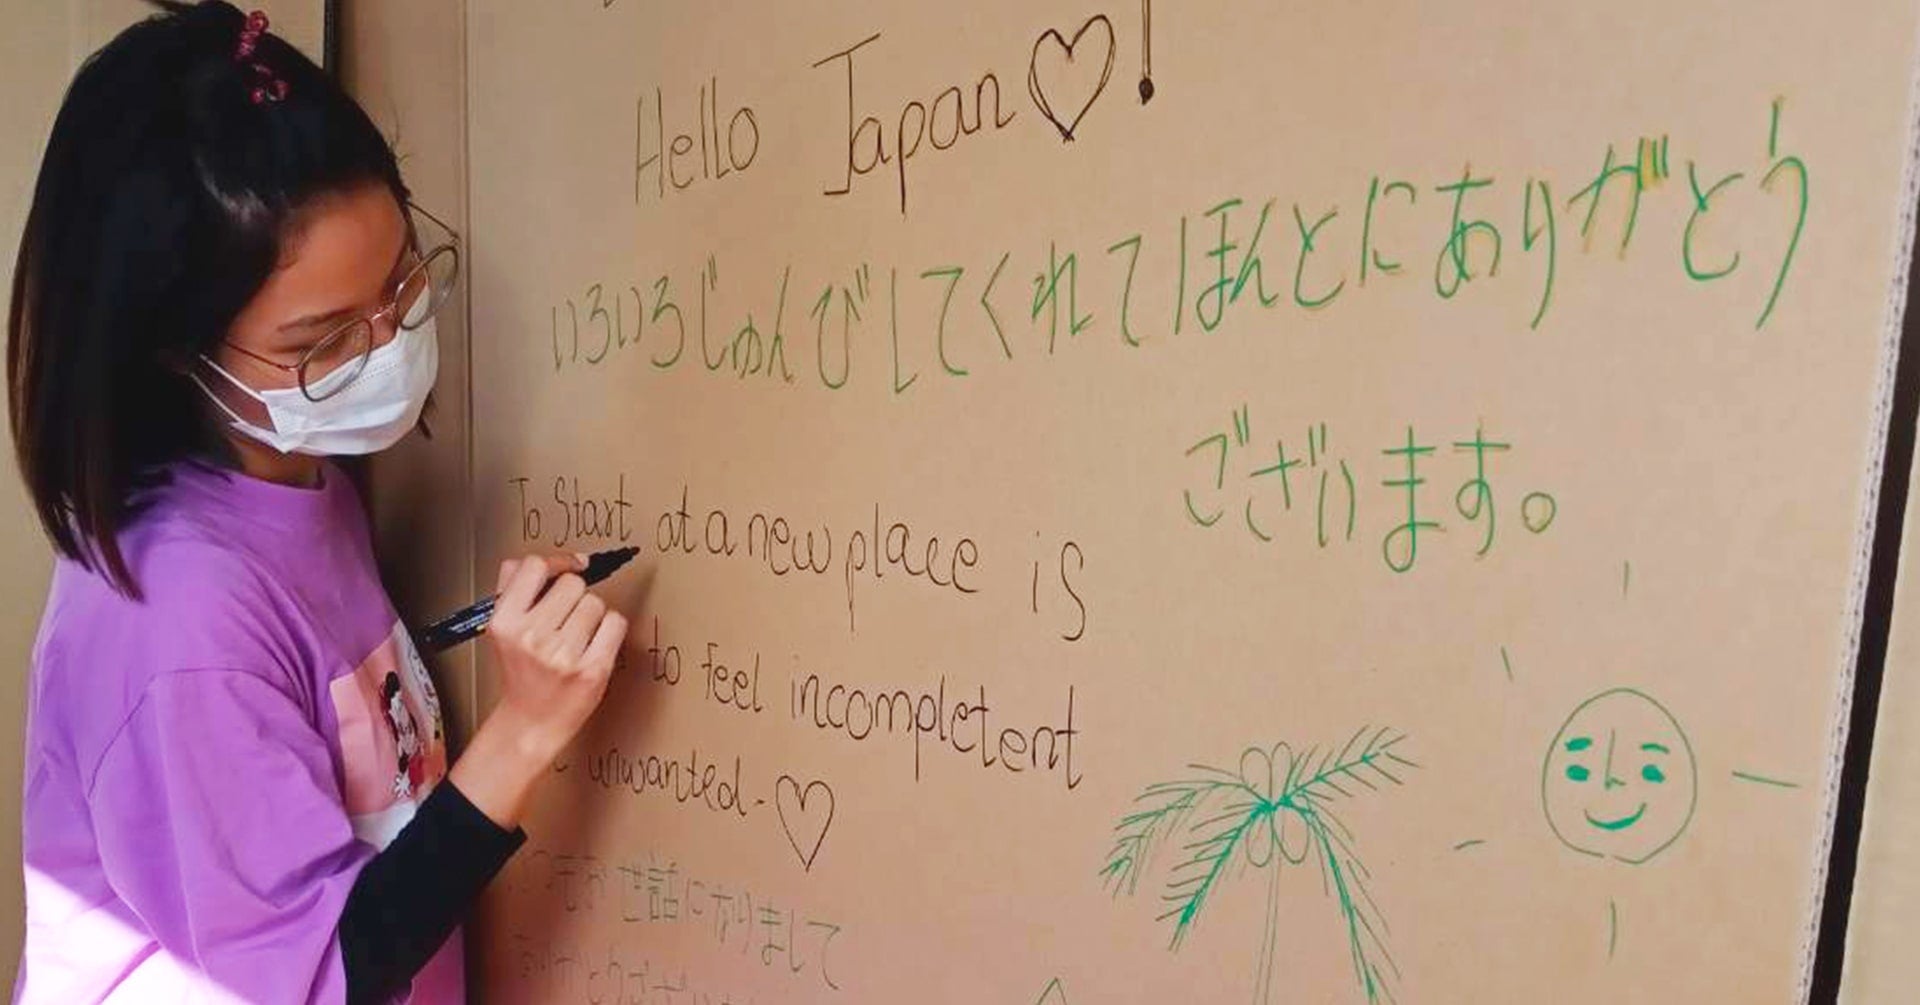 Hello Japan♡!
いろいろじゅんびしてくれてほんとにありがとう
ございます。
To Start at a new place is
to feel incompletent
unwanted. ♡
世話になりまして